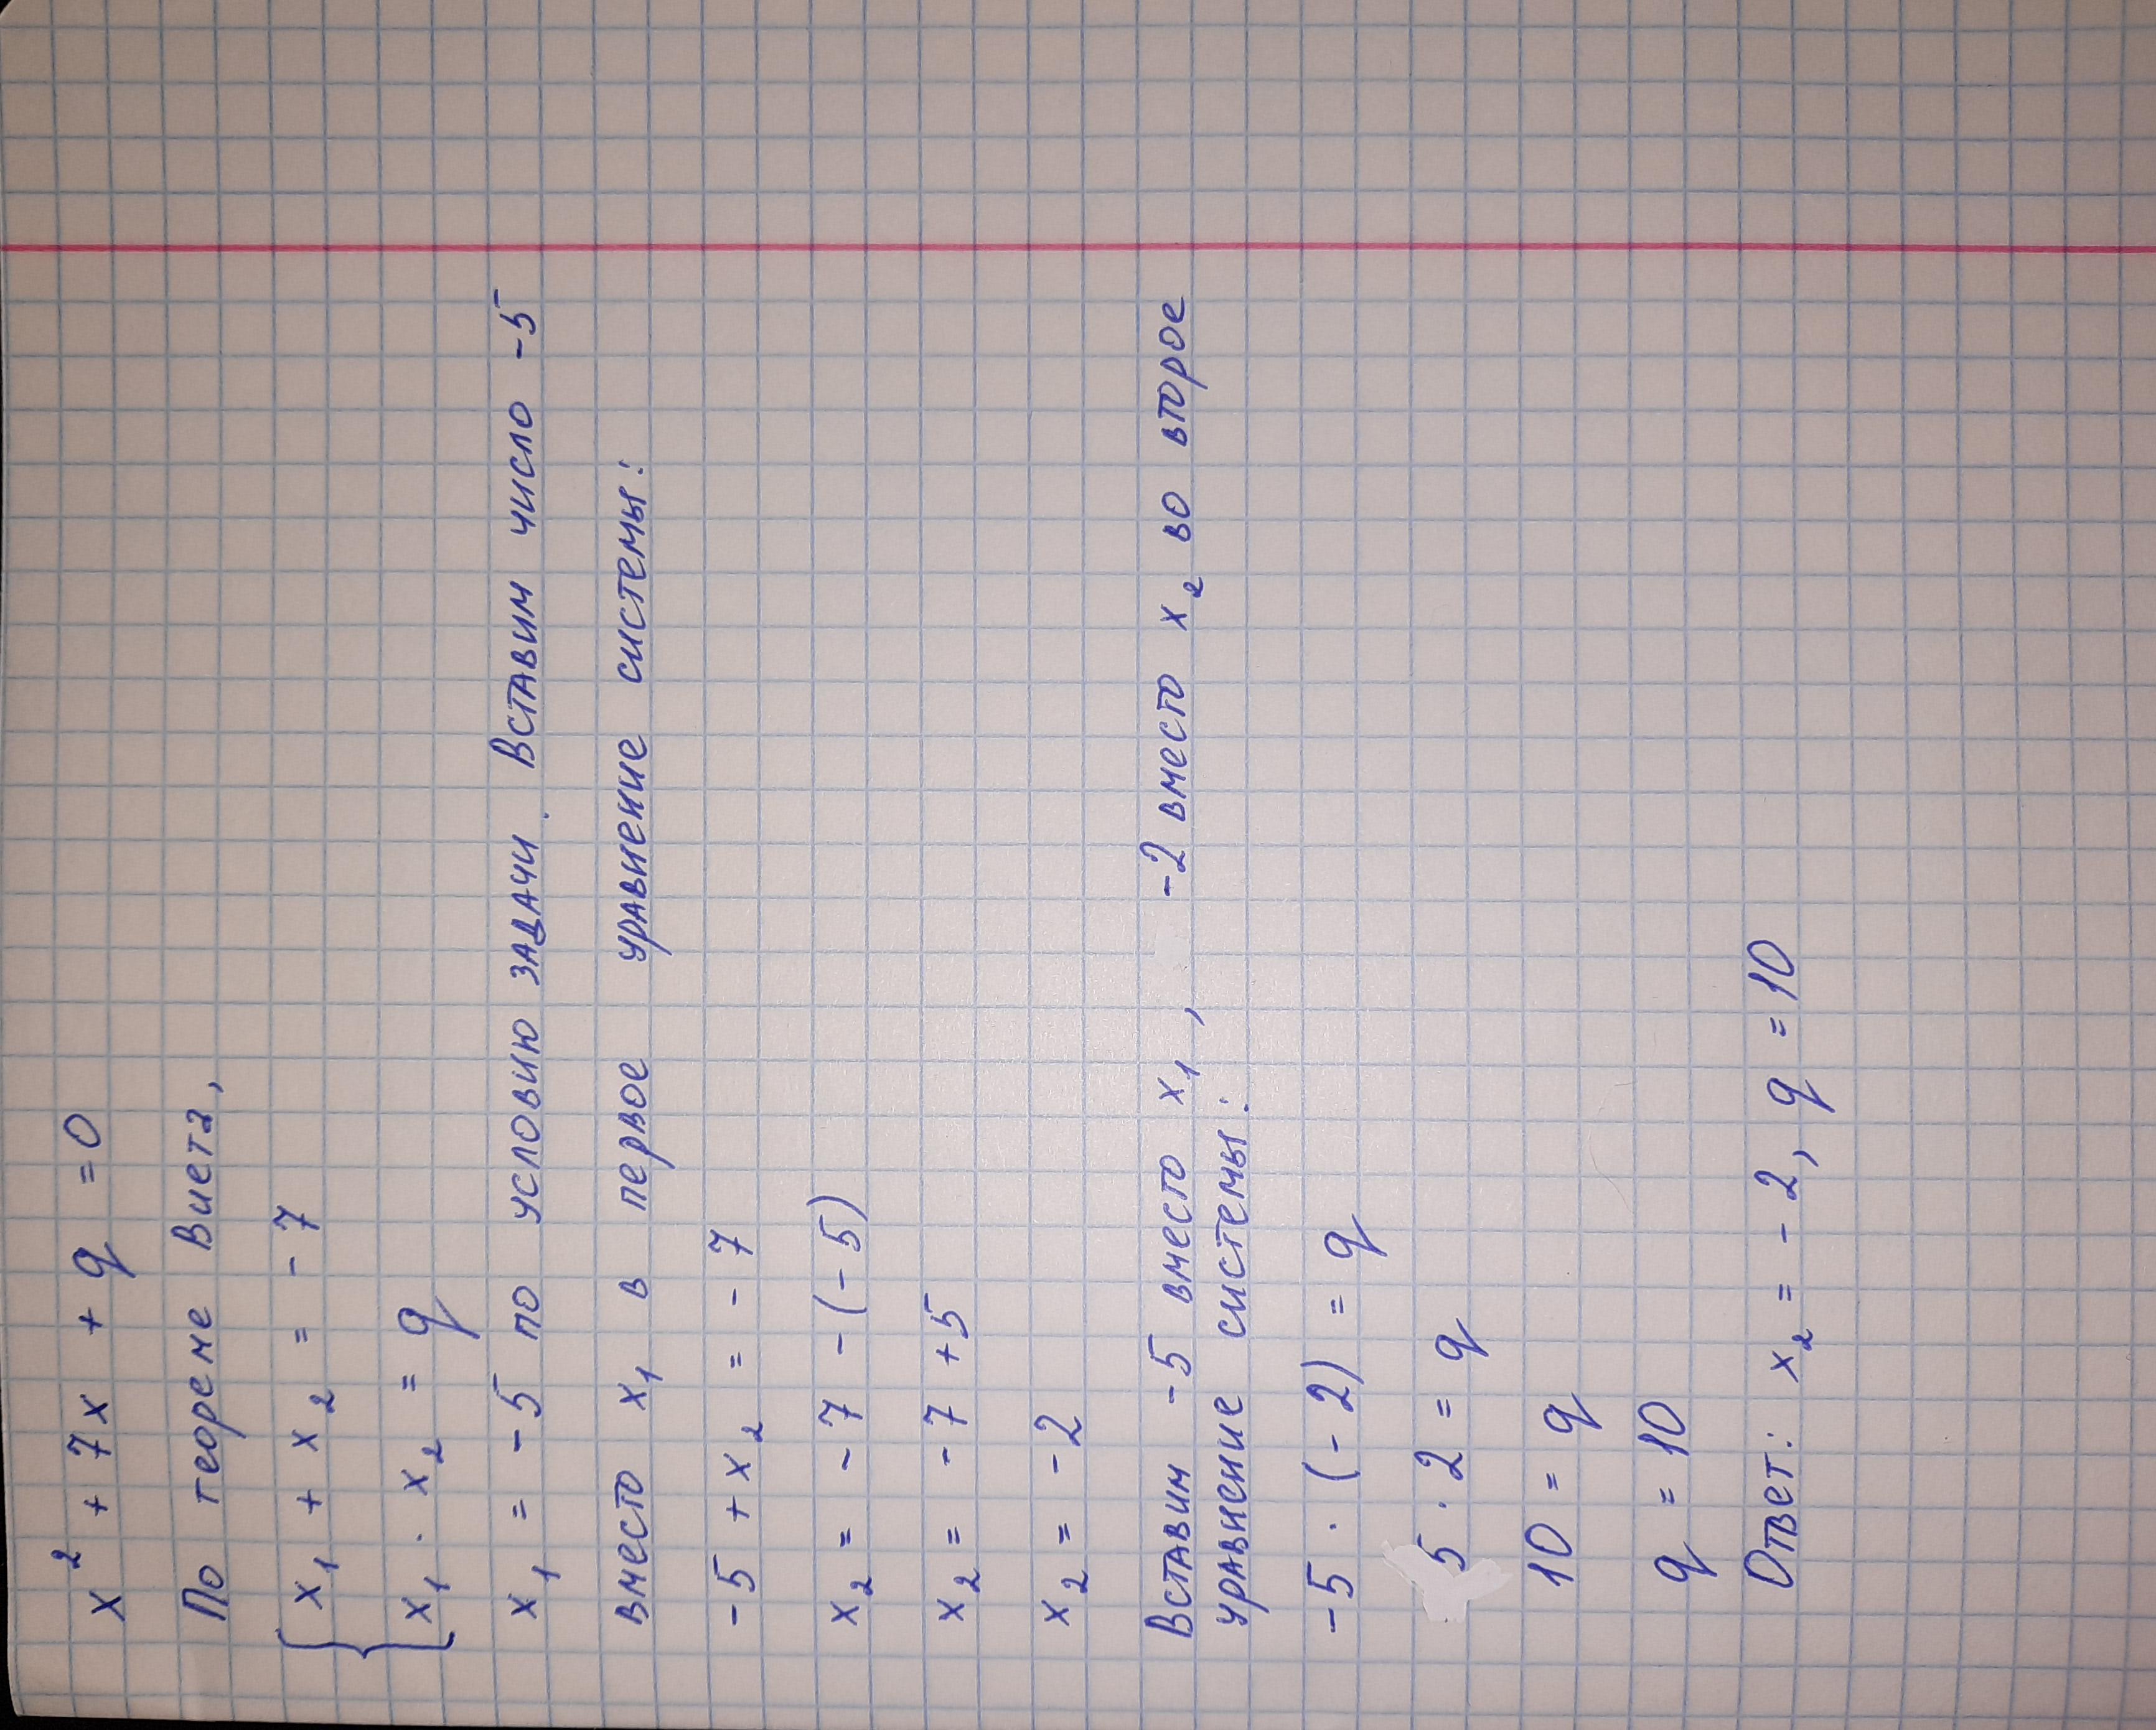 x² + 7x + q = 0
По теореме Виета,
x₁ + x₂ = -7
x₁ · x₂ = q
x₁ = -5 по условию задачи. Вставим число -5
вместо x₁ в первое уравнение системы:
-5 + x₂ = -7
x₂ = -7 - (-5)
x₂ = -7 + 5
x₂ = -2
Вставим -5 вместо x₁, -2 вместо x₂ во второе
уравнение системы:
-5 · (-2) = q
5 · 2 = q
10 = q
q = 10
Ответ: x₂ = -2, q = 10